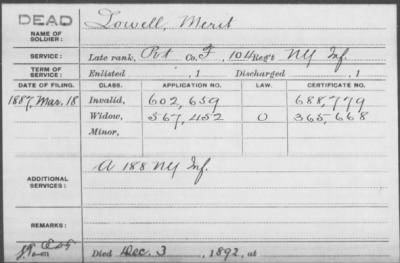 DEAD
NAME OF SOLDIER: Lowell, Merit
SERVICE: Late rank, Pvt Co. F, 104 Reg't NY Inf.
TERM OF SERVICE: Enlisted , 1 Discharged , 1
DATE OF FILING. CLASS. APPLICATION NO. LAW. CERTIFICATE NO.
1887, Mar. 18 Invalid, 602,659 688,779
Widow, 567,452 O 365,668
Minor,
ADDITIONAL SERVICES: A 188 NY Inf.
REMARKS:
Died Dec. 3, 1892, at